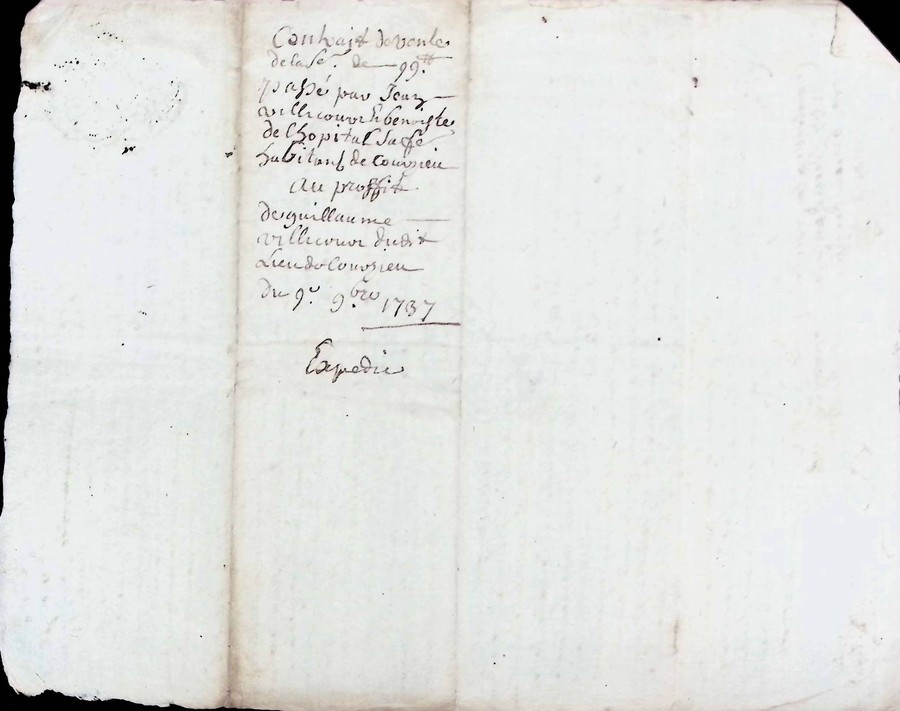 Contrait de vente
de la s.e de — 99.tt
passé par Jean
villecourt & benoiste
de lhopital sa fe
habitans de Courzieu
au proffit
de guillaume —
villecour dudit
Lieu de Courzieu
Du 9.e 9.bre 1737
Expedie